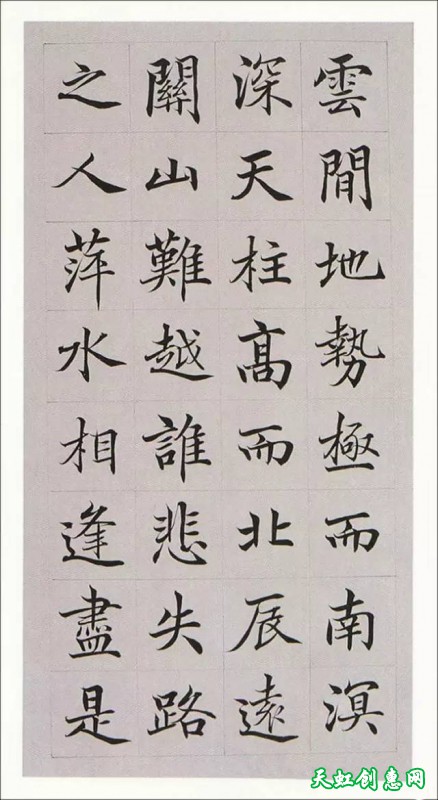 雲間地勢極而南溟
深天柱高而北辰遠
關山難越誰悲失路
之人萍水相逢盡是
天虹创惠网